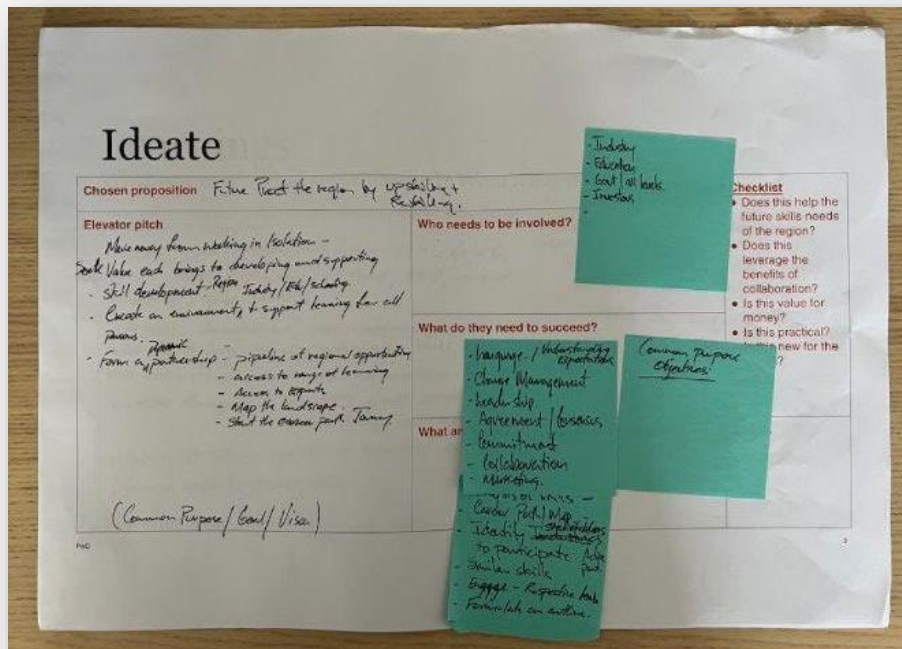 Ideate
Chosen proposition Future Proof the region by upskilling +
Reskilling.
Elevator pitch
Move away from working in Isolation -
Value each brings to developing and supporting
- Skill development Region Industry / Edu /
- Create an environment, to support learning for all
- Form a partnership - pipeline of regional opportunities
- access to range of learning
- Access to experts
- Map the landscape
- Start the career path
(Common Purpose / Goal /
Who needs to be involved?
- Industry
- Education
- Govt / all levels
- Investors
-
What do they need to succeed?
- Language / Understanding
Expectations
- Change Management
- Leadership
- Agreement / Consensus
- Commitment
- Collaboration
- Marketing.
Common purpose
objectives!
What
- Career Path / Map
- Identify Stakeholders
to participate
- Similar skills
- Engage - Respective
- Formulate an outline.
Checklist
• Does this help the
future skills needs
of the region?
• Does this
leverage the
benefits of
collaboration?
• Is this value for
money?
• Is this practical?
new for the
?